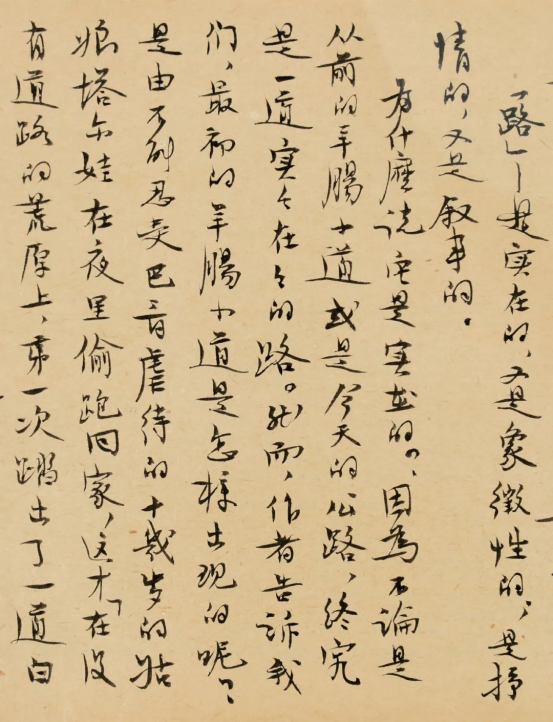 「路」─是实在的，又是象徵性的，是抒
情的，又是叙事的。
为什麽说它是实在的，因為不論是
从前的羊腸小道或是今天的公路，终究
是一道实々在々的路。然而，作者告訴我
们，最初的羊腸小道是怎样出现的呢？
是由不削忍受巴音虐待的十歲岁的姑
娘塔尔娃在夜里偷跑回家，这才「在没
有道路的荒原上，第一次踏出了一道白